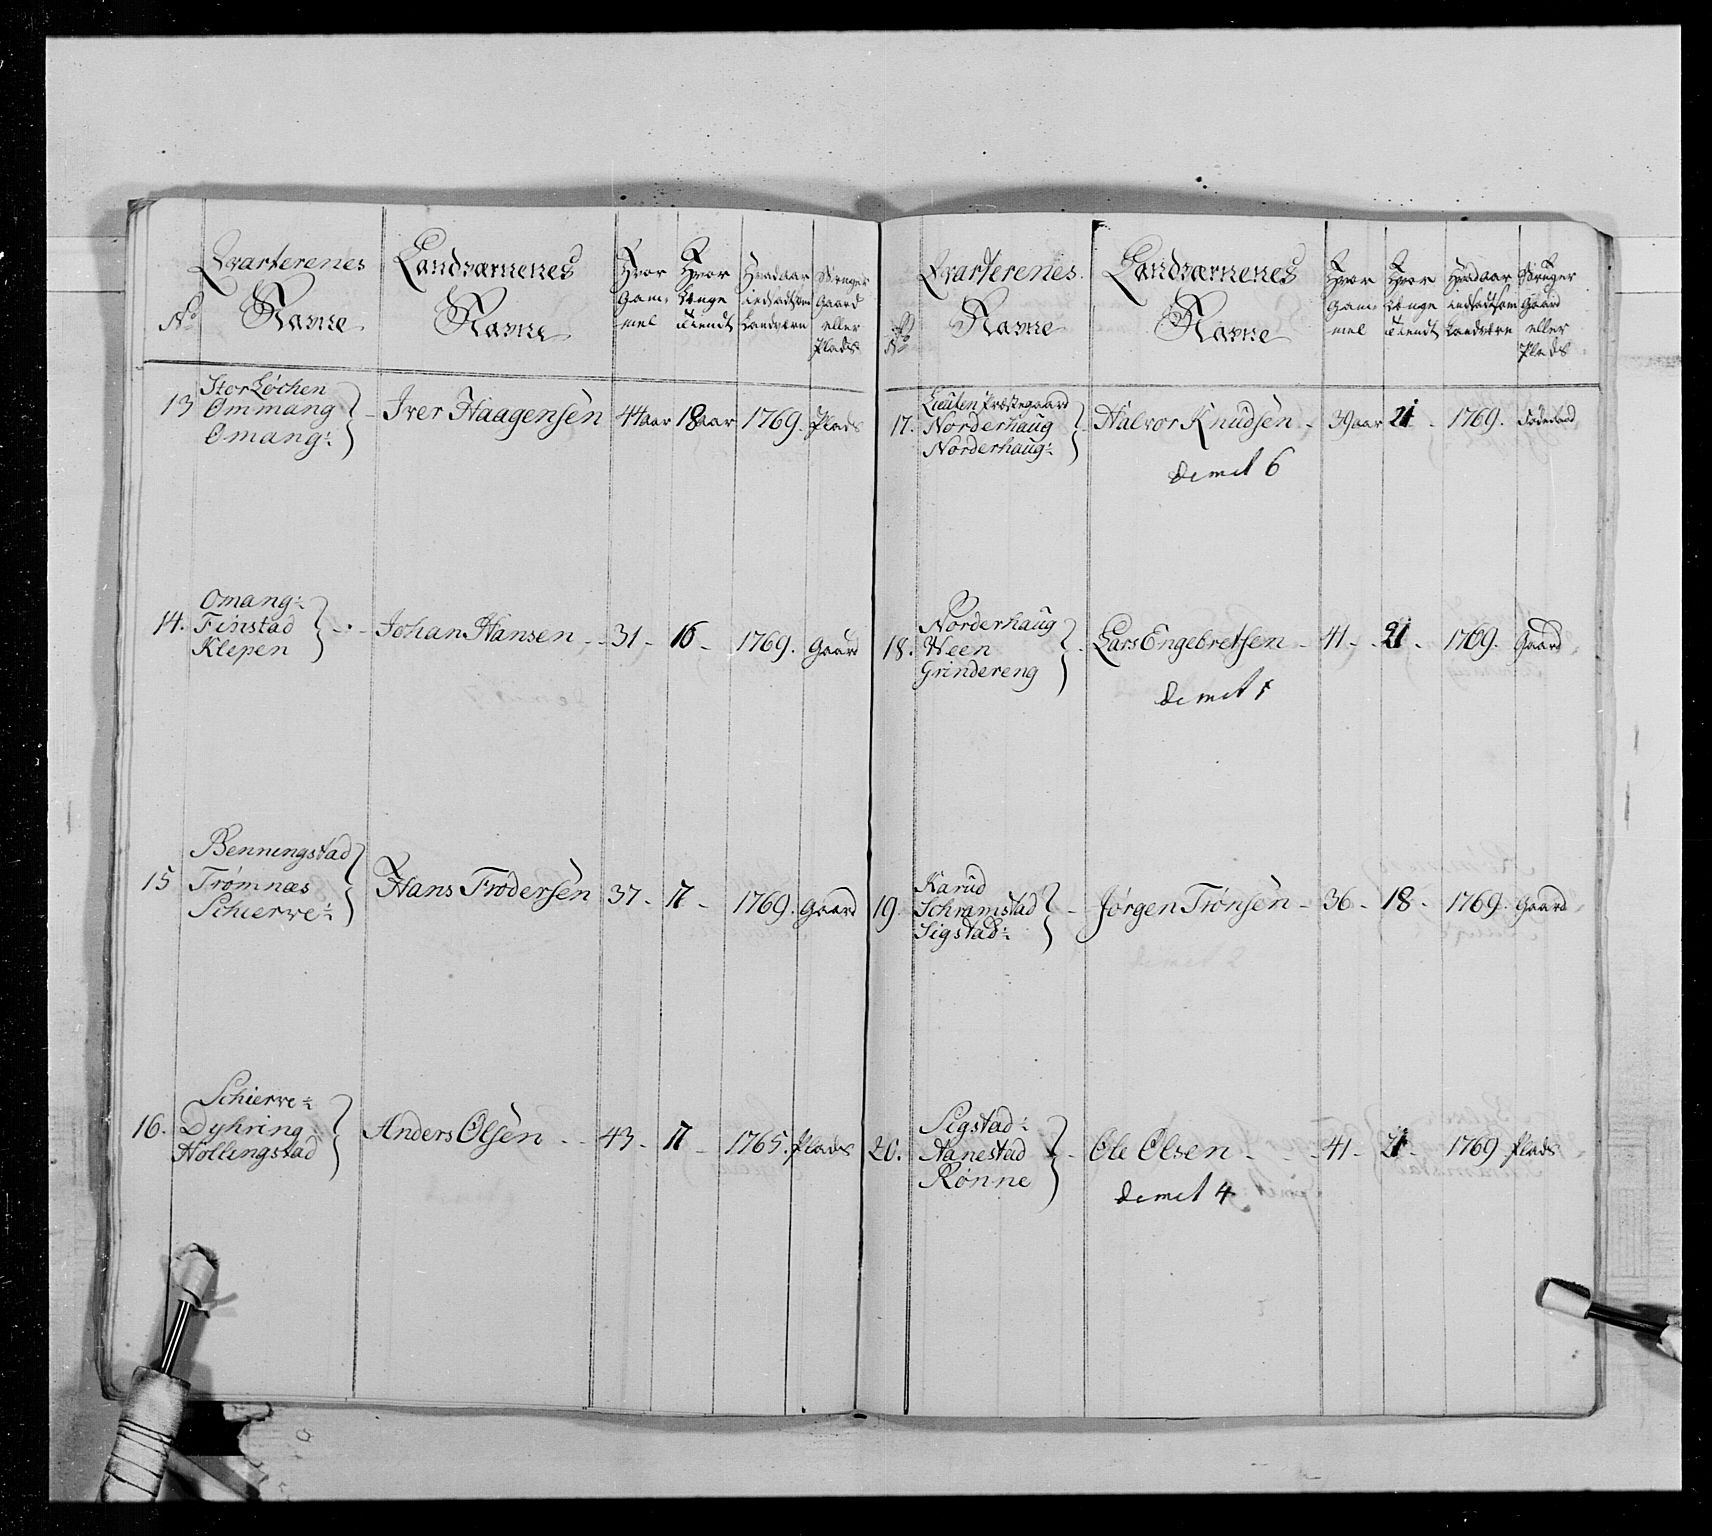 No
Qvarterenes Navne
Landværnenes Navne
Hvor Gam- mel
Hvor Lenge tiendt
Hvad aar indsadt som Landvern
Bruger Gaard eller Plads
13 Stor Løchen
Ommang
Omang:
Iver Haagensen 44 aar 18 aar 1769. Plads
14. Omang:
Finstad
Klepen
Johan Hansen 31 - 16 - 1769. Gaard
15 Benningstad
Trømnæs
Schierve:
Hans Frodersen 37 - 17 - 1769. Gaard
16. Schierve:
Dyhring
Hollingstad
Anders Olsen - - 43 - 17 - 1765. Plads
No
Qvarterenes Navne
Landværnenes Navne
Hvor Gam- mel
Hvor Lenge tiendt
Hvad aar indsadt som Landvern
Bruger Gaard eller Plads
17. Lieuten Præstegaard
Norderhaug
Norderhaug:
Halvor Knudsen - 39 aar 21 - 1769.
dimit 6
18. Norderhaug
Ween
Grindereng
Lars Engebretsen - 41 - 21 - 1769. Gaard
dimit
19 Karud
Schramstad
Sigstad:
Jørgen Trønsen - 36 - 18 - 1769. Gaard
20. Sigstad:
Hanestad
Rønne
Ole Olsen - - - 41 - 21 - 1769 Plads
dimit 4